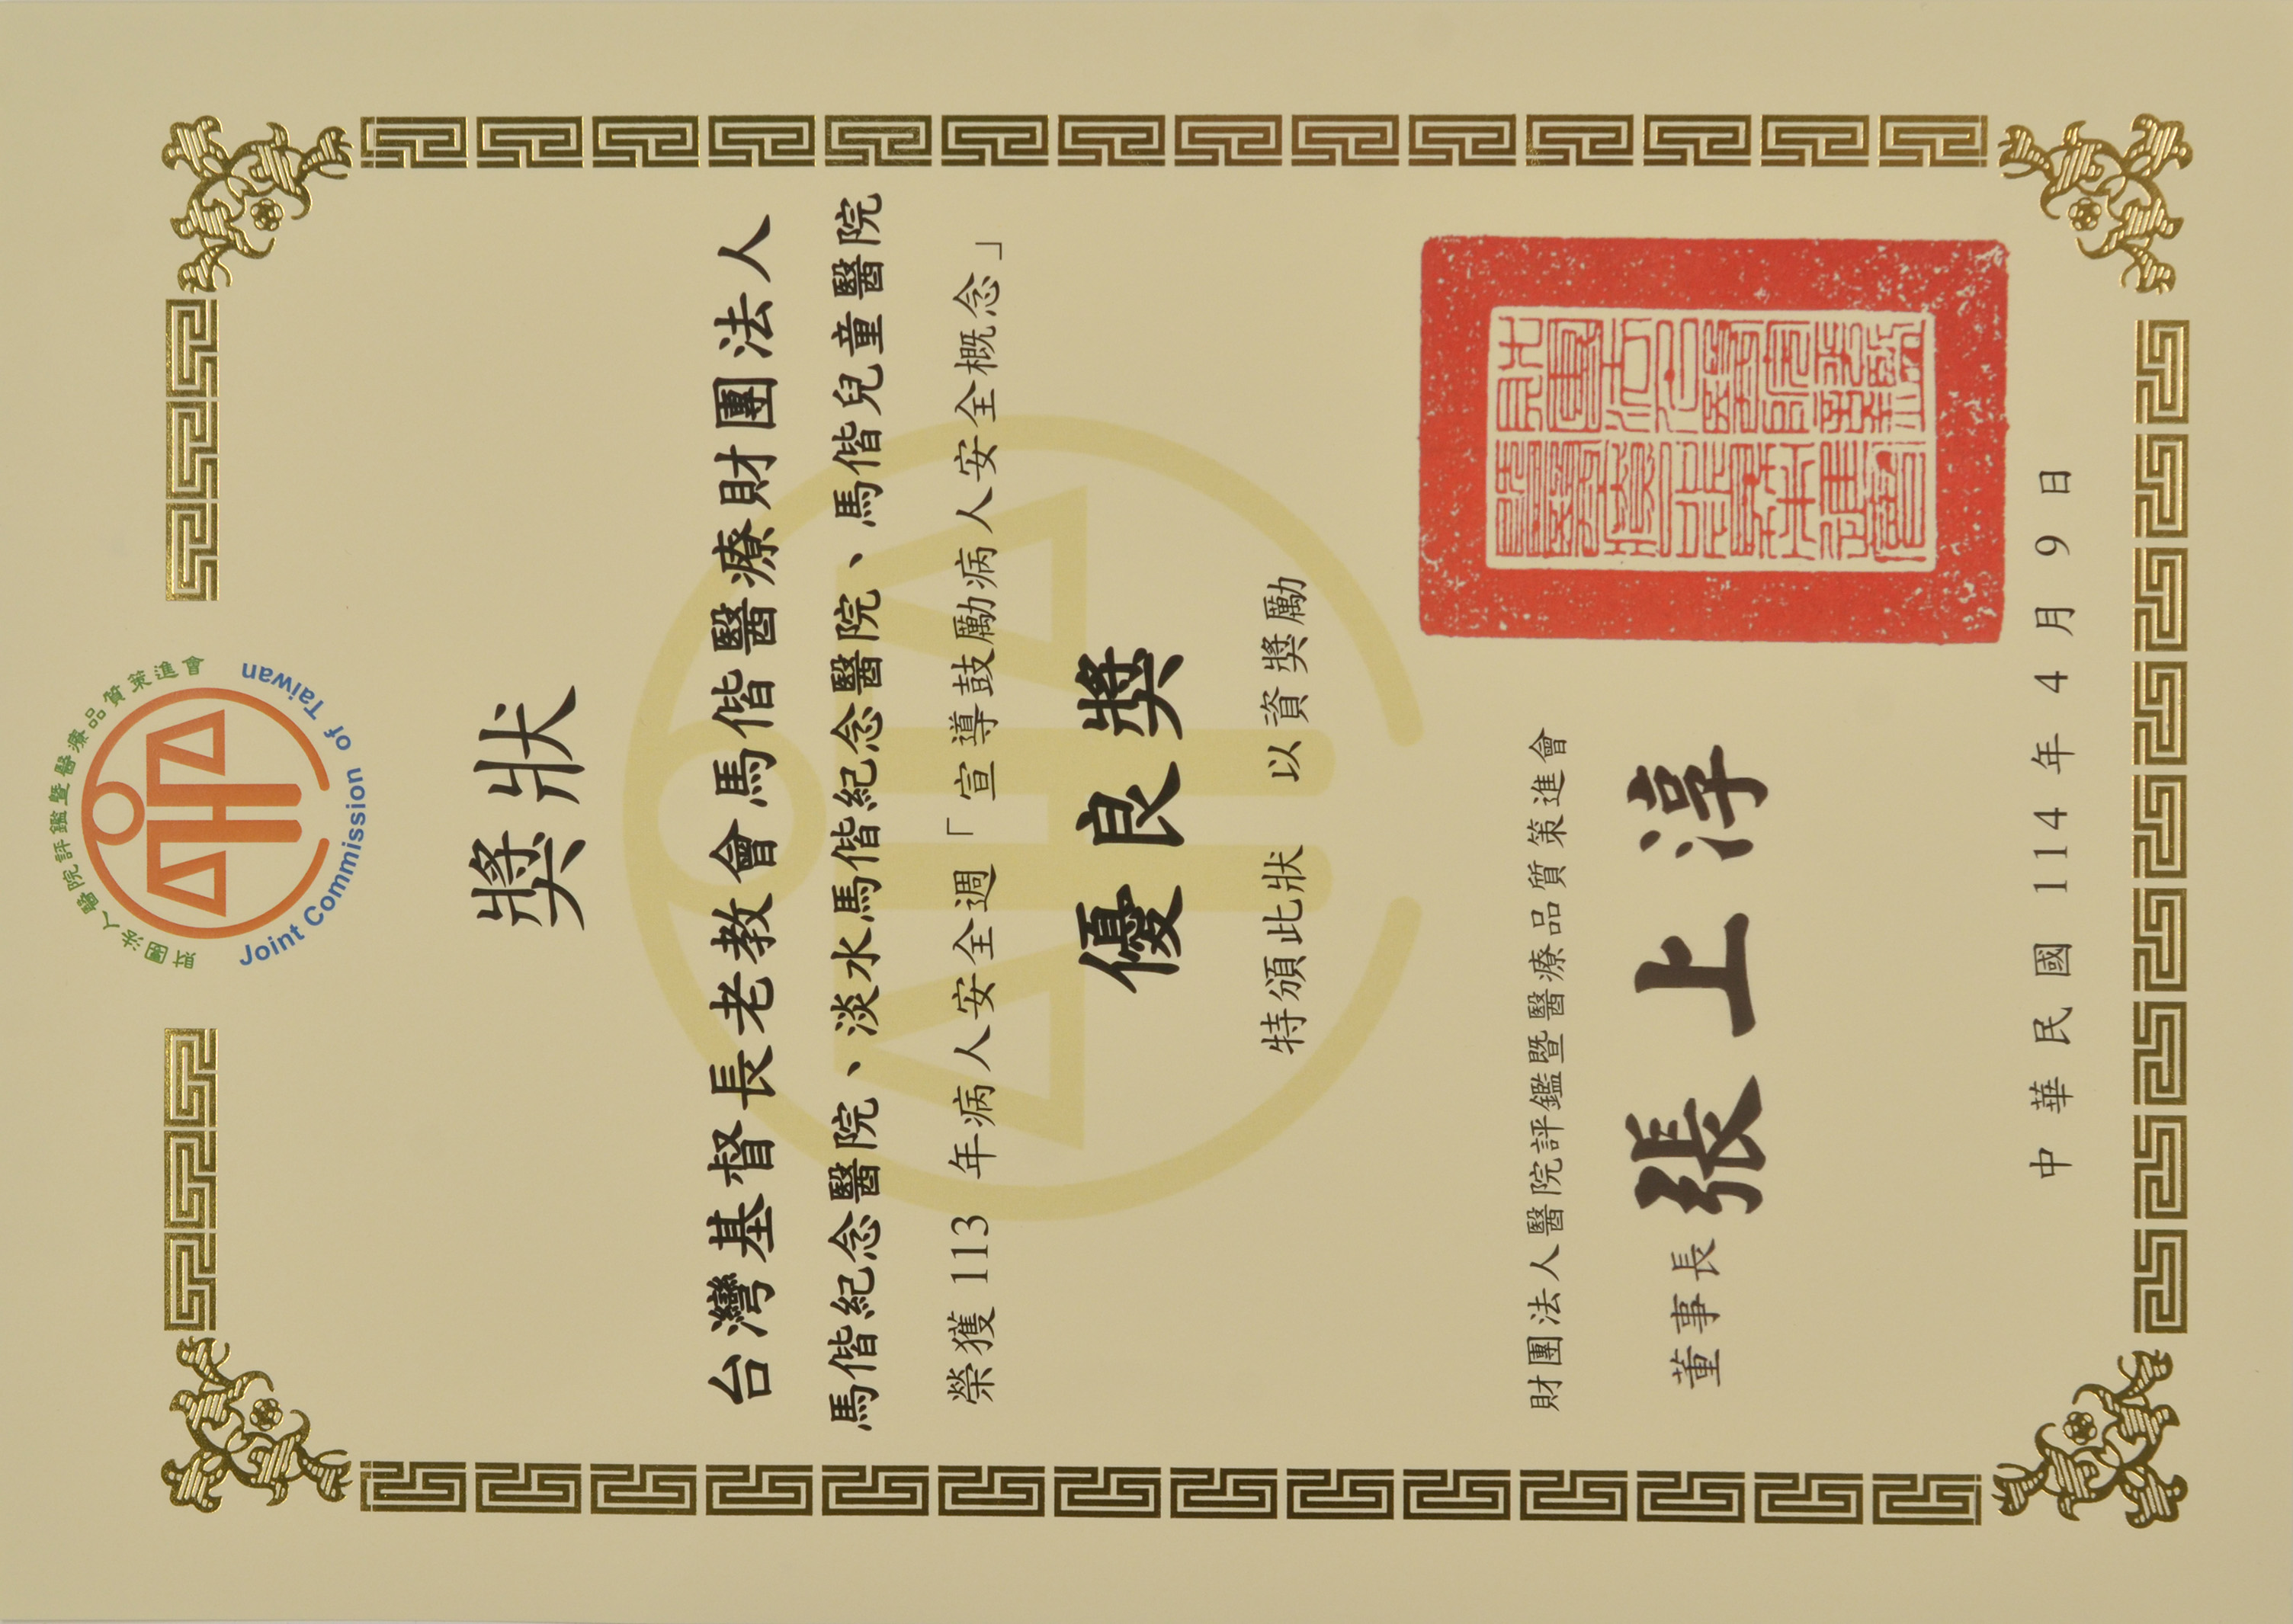 財團法人醫院評鑑暨醫療品質策進會
Joint Commission of Taiwan
獎狀
台灣基督長老教會馬偕醫療財團法人
馬偕紀念醫院、淡水馬偕紀念醫院、馬偕兒童醫院
榮獲 113 年病人安全週「宣導鼓勵病人安全概念」
優良獎
特頒此狀 以資獎勵
財團法人醫院評鑑暨醫療品質策進會
董事長 張上淳
中華民國 114 年 4 月 9 日